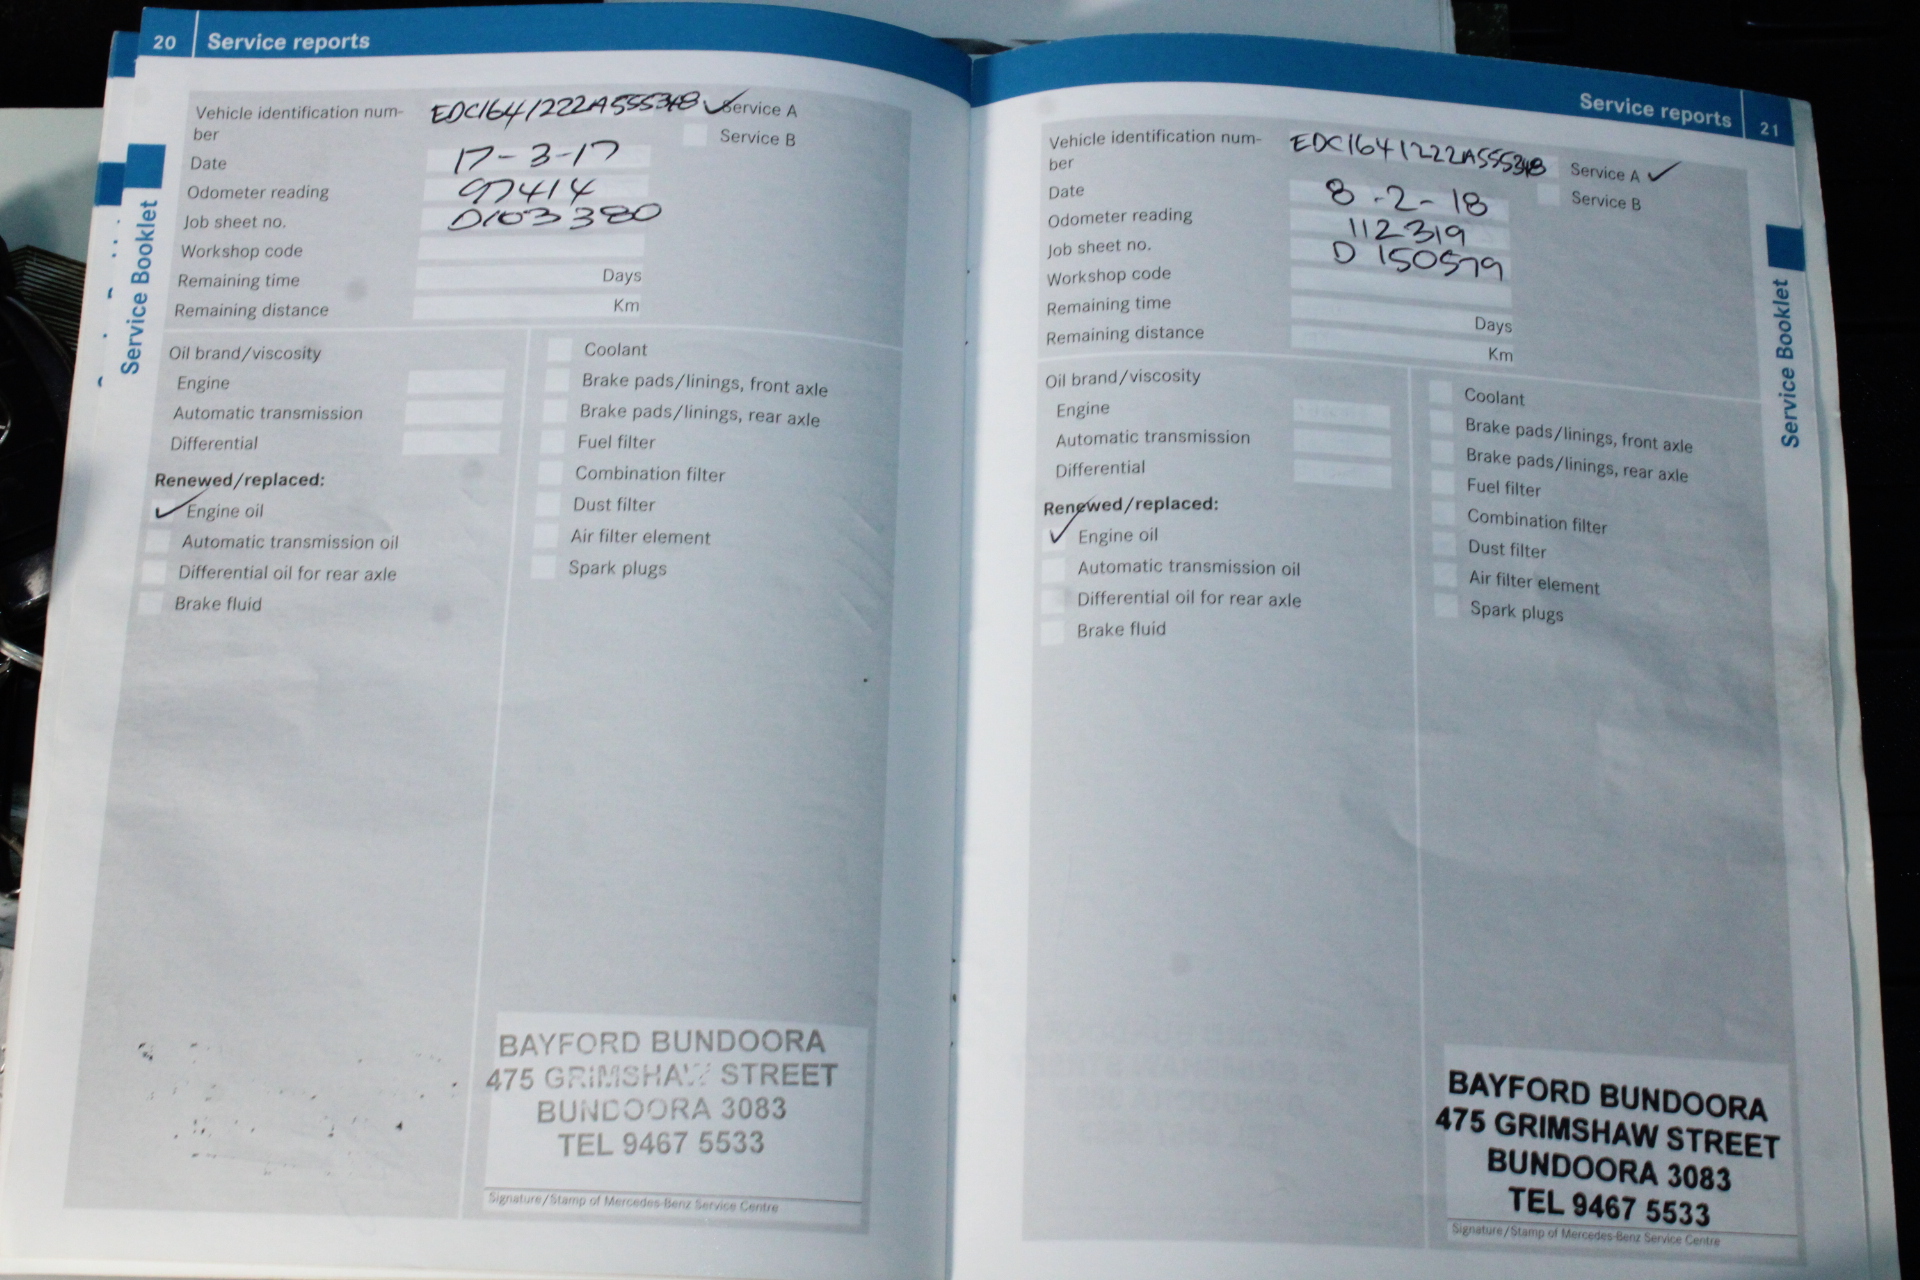 20 Service reports
Vehicle identification num-
ber
EDC1641222A555348
Service A
Service B
Date 17-3-17
Odometer reading 97414
Job sheet no. D103380
Workshop code
Remaining time Days
Remaining distance Km
Oil brand/viscosity
Engine
Automatic transmission
Differential
Renewed/replaced:
Engine oil
Automatic transmission oil
Differential oil for rear axle
Brake fluid
Coolant
Brake pads/linings, front axle
Brake pads/linings, rear axle
Fuel filter
Combination filter
Dust filter
Air filter element
Spark plugs
BAYFORD BUNDOORA
475 GRIMSHAW STREET
BUNDOORA 3083
TEL 9467 5533
Signature/Stamp of Mercedes-Benz Service Centre
Service Booklet
Service reports 21
Vehicle identification num-
ber
EDC1641222A555348
Service A
Service B
Date 8-2-18
Odometer reading 112319
Job sheet no. D150579
Workshop code
Remaining time Days
Remaining distance Km
Oil brand/viscosity
Engine
Automatic transmission
Differential
Renewed/replaced:
Engine oil
Automatic transmission oil
Differential oil for rear axle
Brake fluid
Coolant
Brake pads/linings, front axle
Brake pads/linings, rear axle
Fuel filter
Combination filter
Dust filter
Air filter element
Spark plugs
BAYFORD BUNDOORA
475 GRIMSHAW STREET
BUNDOORA 3083
TEL 9467 5533
Signature/Stamp of Mercedes-Benz Service Centre
Service Booklet